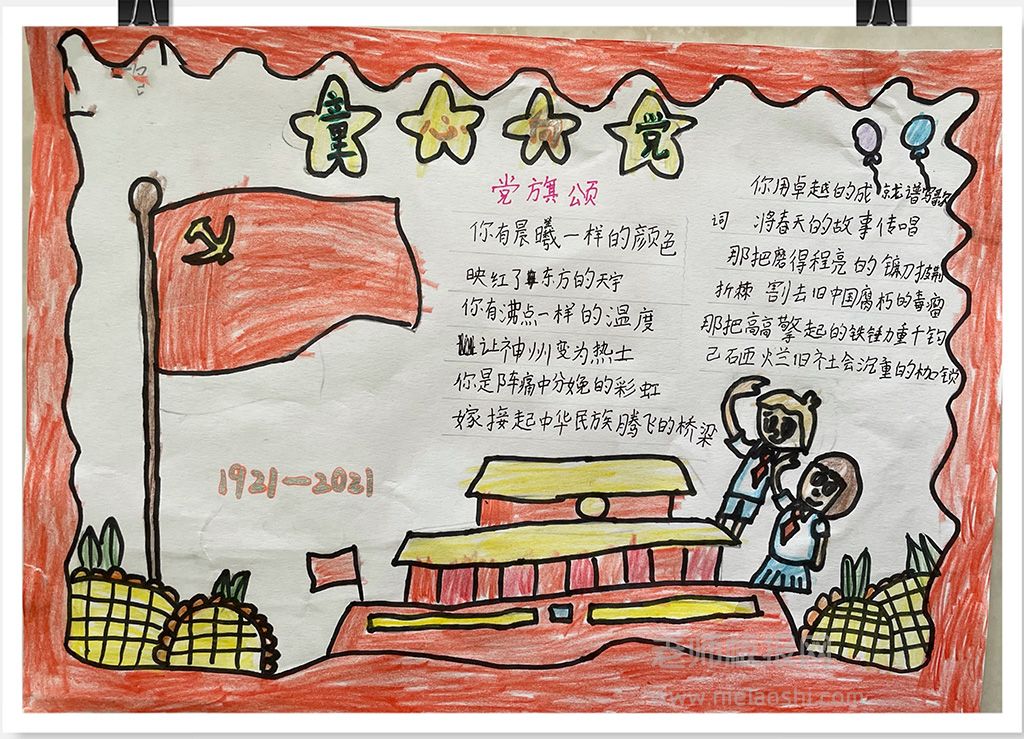 童心向党
党旗颂
你有晨曦一样的颜色
映红了东方的天宇
你有沸点一样的温度
让神州变为热土
你是阵痛中分娩的彩虹
嫁接起中华民族腾飞的桥梁
你用卓越的成就谱写款
词 将春天的故事传唱
那把磨得程亮的镰刀披荆
折棘 割去旧中国腐朽的毒瘤
那把高高擎起的铁锤力重千钧
己石砸烂旧社会沉重的枷锁
1921—2021
www.meilaoshi.com